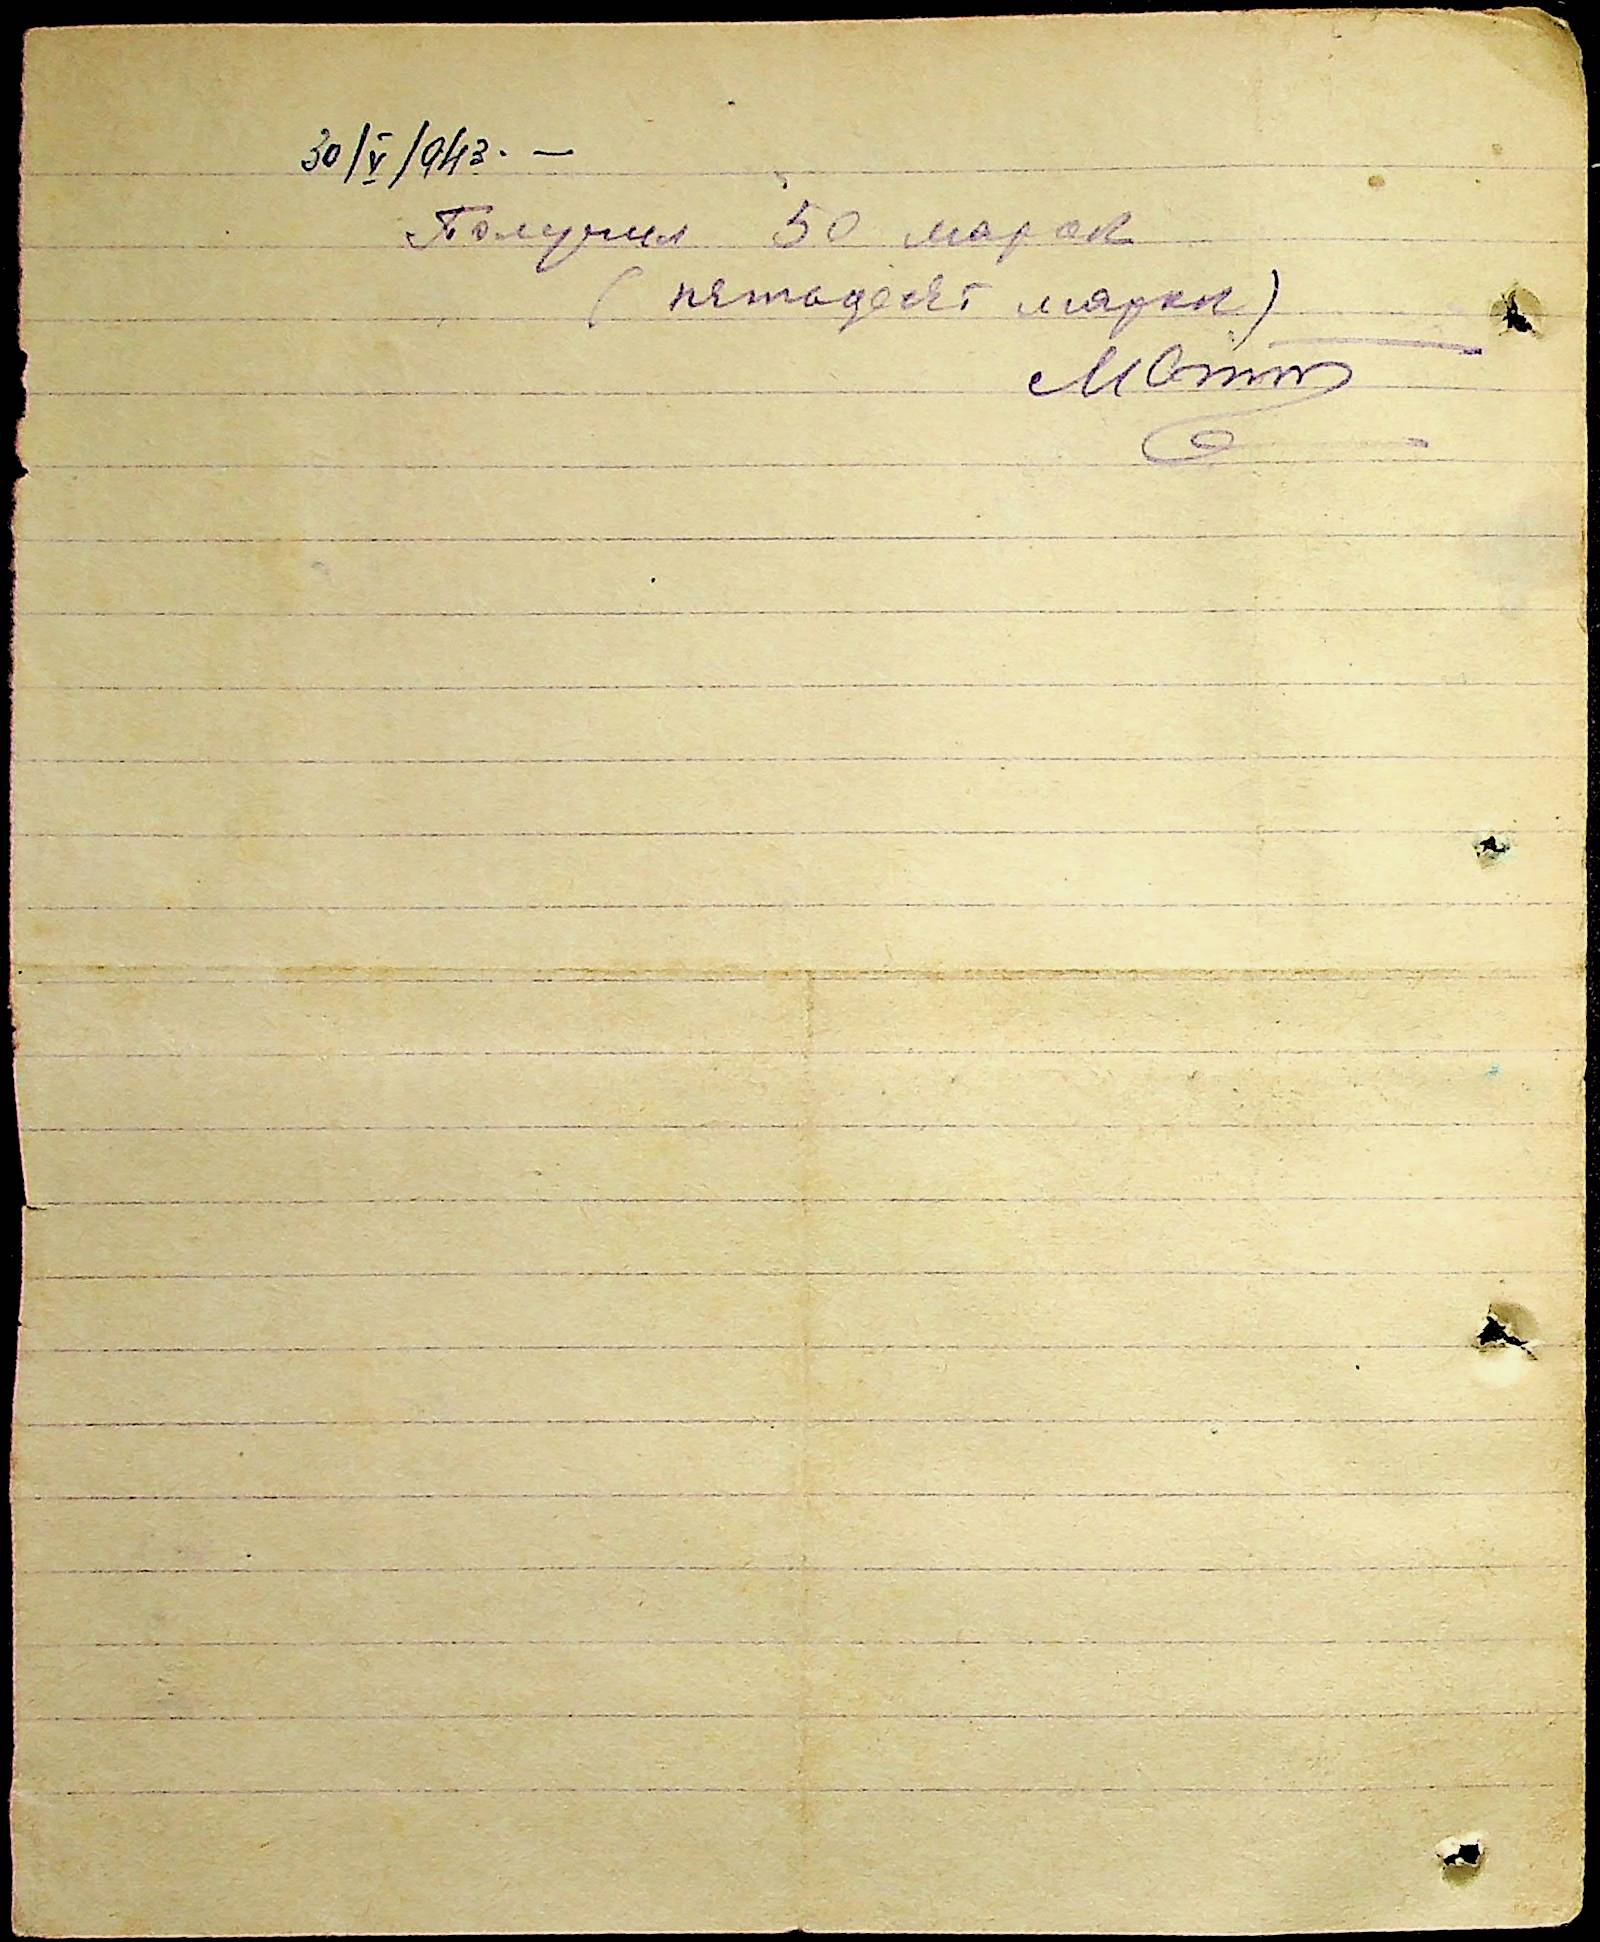 30/V/943. —
Получил 50 марок
(пятьадесят марки)